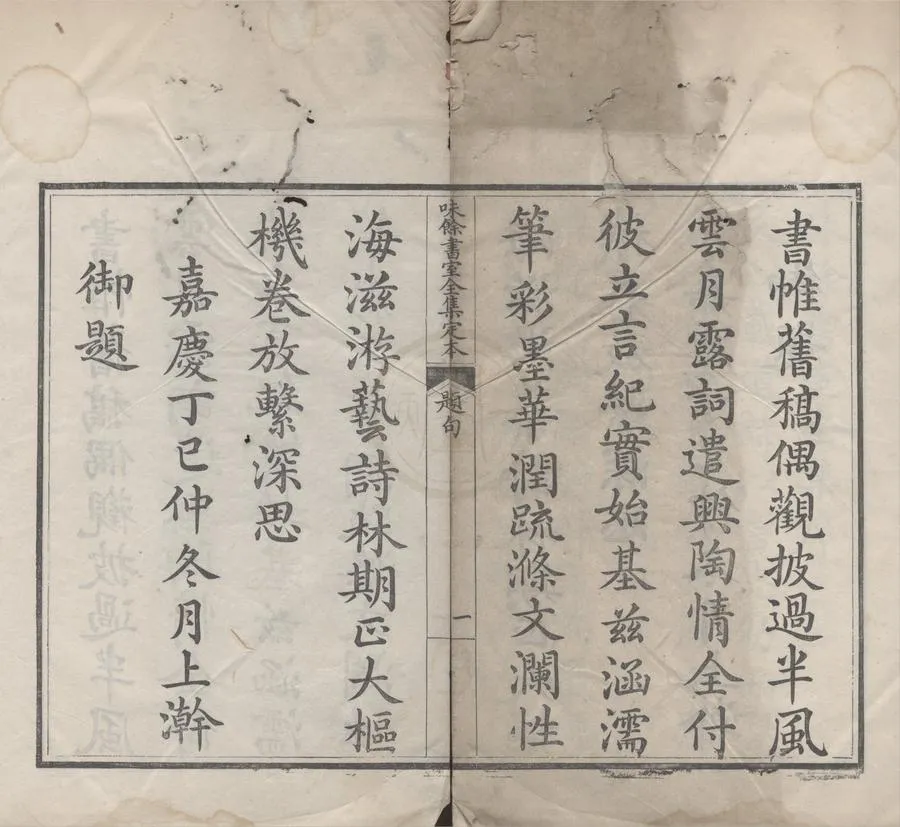 書帷舊稿偶觀披過半風
雲月露詞遣興陶情全付
彼立言紀實始基茲涵濡
筆彩墨華潤疏滌文瀾性
味餘書室全集定本
題句
一
海滋游藝詩林期正大樞
機卷放繫深思
嘉慶丁巳仲冬月上澣
御題